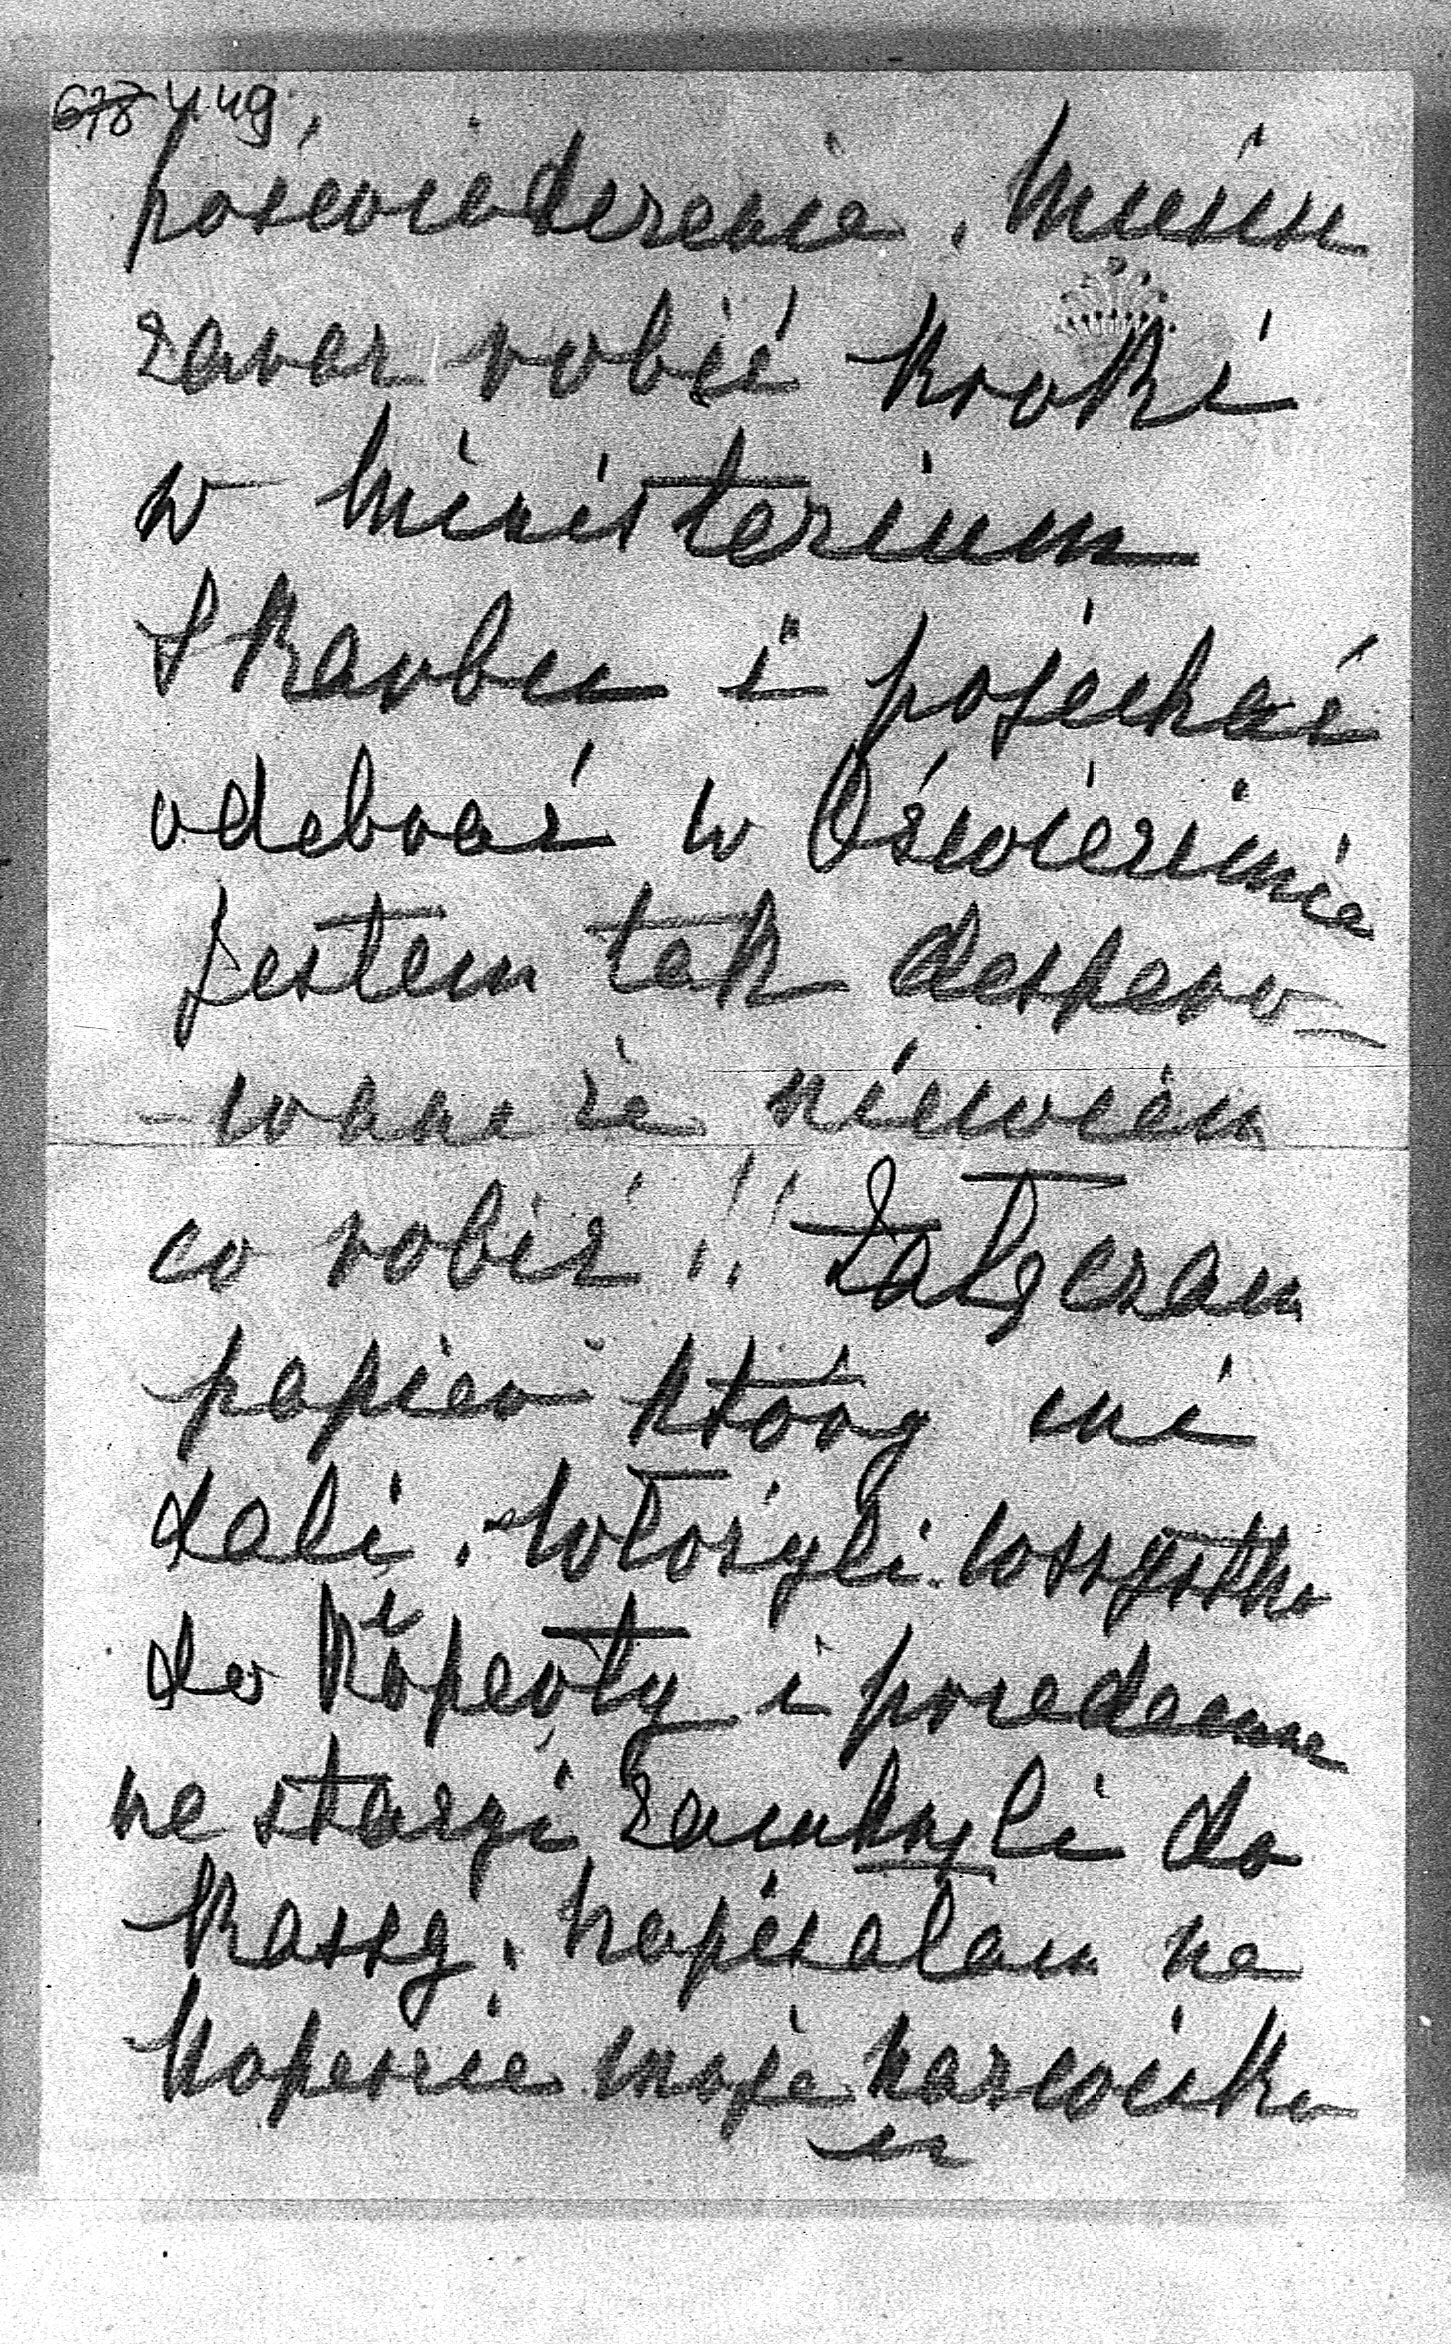 678 449
poświadczenie. Musisz
zaraz robić kroki
w Ministerium
Skarbu i pojechać
odebrać w Oświęcimie
Jestem tak despero-
-wana że niewiem
co robić!! Załączam
papier który mi
dali. Włożyli wszystko
do koperty i przedemne
na stacyi zamknęli do
kassy. Napisałam na
kopercie moje nazwisko